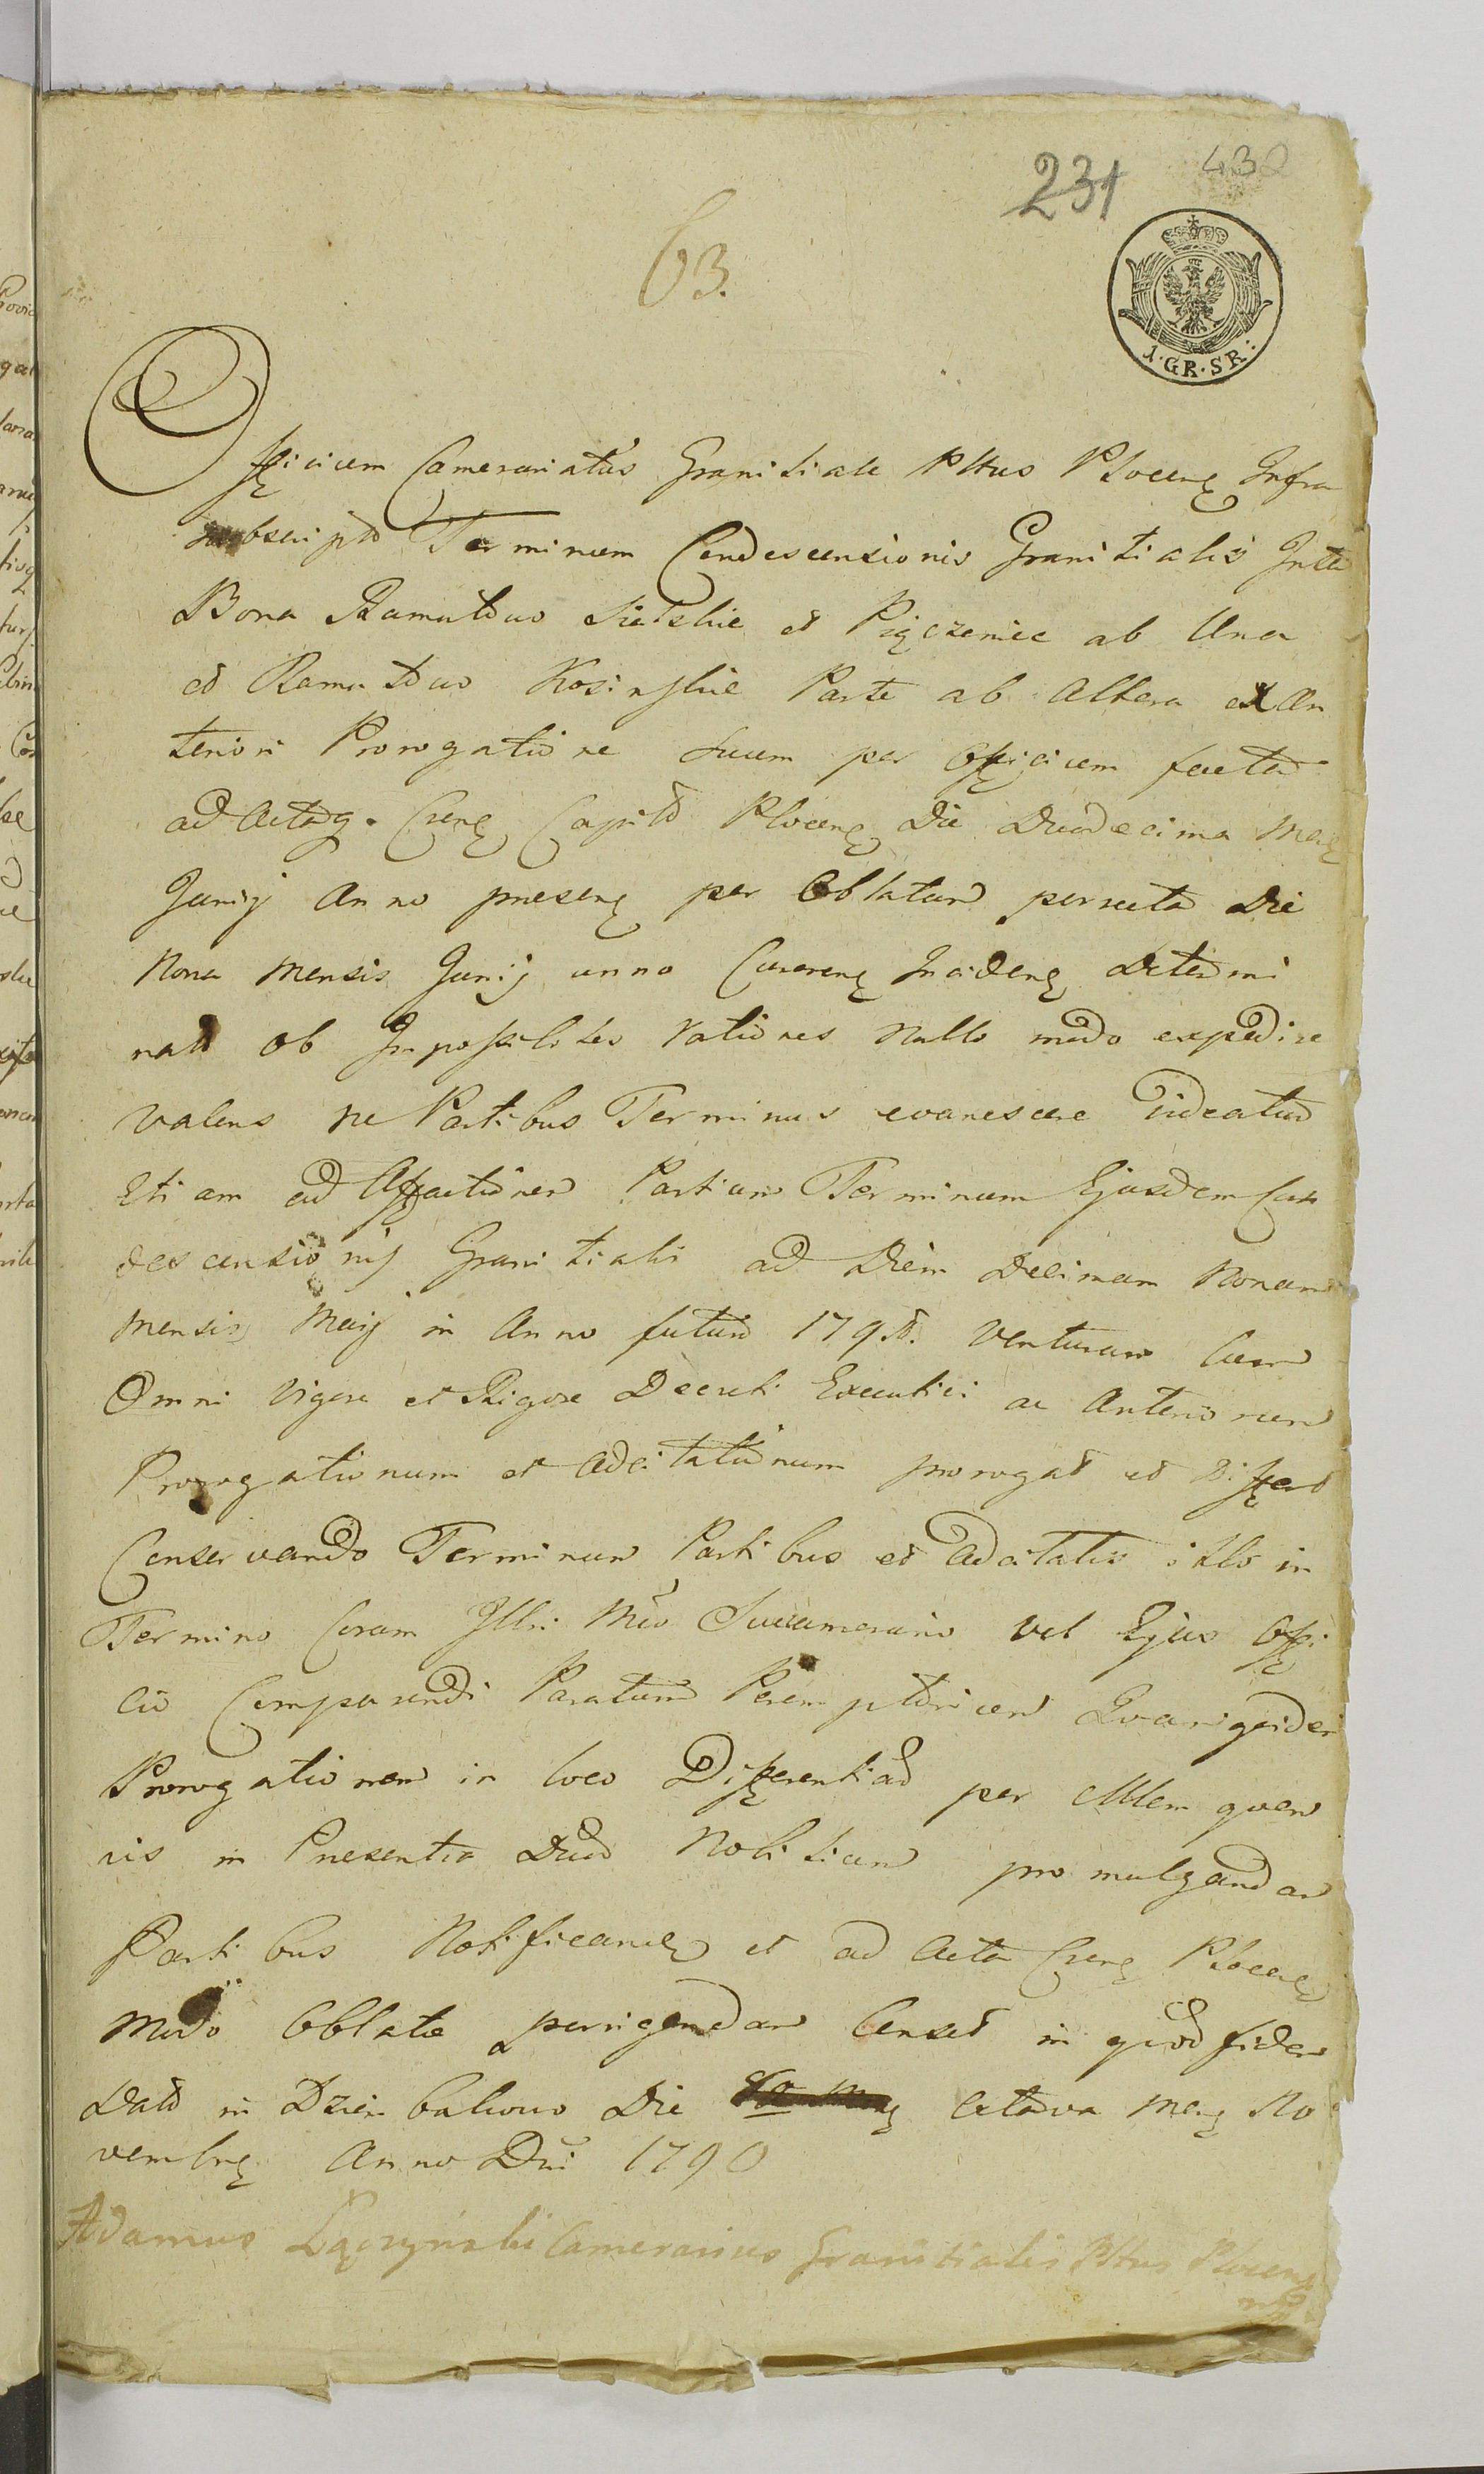 231 432
63.
1·GR·SR:
Officium Camerariatus Granitiale Plttus Plocenę Infra
subscripto Terminum Condescensionis Granitialis Inter
Bona Ramutowo Sielskie et Pięczeniec ab Una
et Ramutowo Kosinskie Parte ab altera ex an
teriori Prorogatione Suum per officium facta
ad Actag. Csenę Capit Plocenę Die Duodecima Menę
Junij Anno presenę per Oblatam porrecta Die
Nona Mensis Junij anno Currenę Incidenę Determi
nat ob Impossibiles rationes Nullo modo expedire
valens ne Partibus Terminus evanescere videatur
Etiam ad Affectationem Partium Terminum Ejusdem Con
descensionis Granitialis ad Diem Decimam Nonam
Mensis Maij in Anno futuro 179 venturum cum
Omni Vigore et Rigore Decreti Executivi ac Anteriorum
Prorogationum et adcitationum prorogat et Differt
Conservando Terminum Partibus et adcitatis illo in
Termino Coram Illri Mco Succamerario vel Ejus Offi
cio Comparendi Paratum Peremptorium Quam quidem
Prorogationem in loco Differentiar per Mlem quem
vis in Presentia Duor Nobilium promulgandam
Partibus Notificandę et ad Acta Csenę Plocenę
Modo Oblatæ porrigendam Censet in quor fidem
Dat in Dziembakowo Die Octava Menę No
vembrę Anno Dni 1790
Adamus Łączyński Camerarius Granitialis Plttus Plocenę
mp